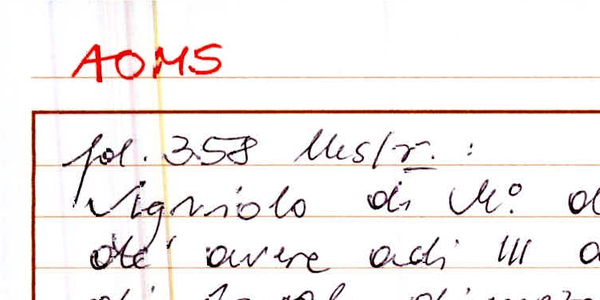 AOMS
fol. 358 Ms/r. :
Vignuolo di M.º d
de' avere adi III a